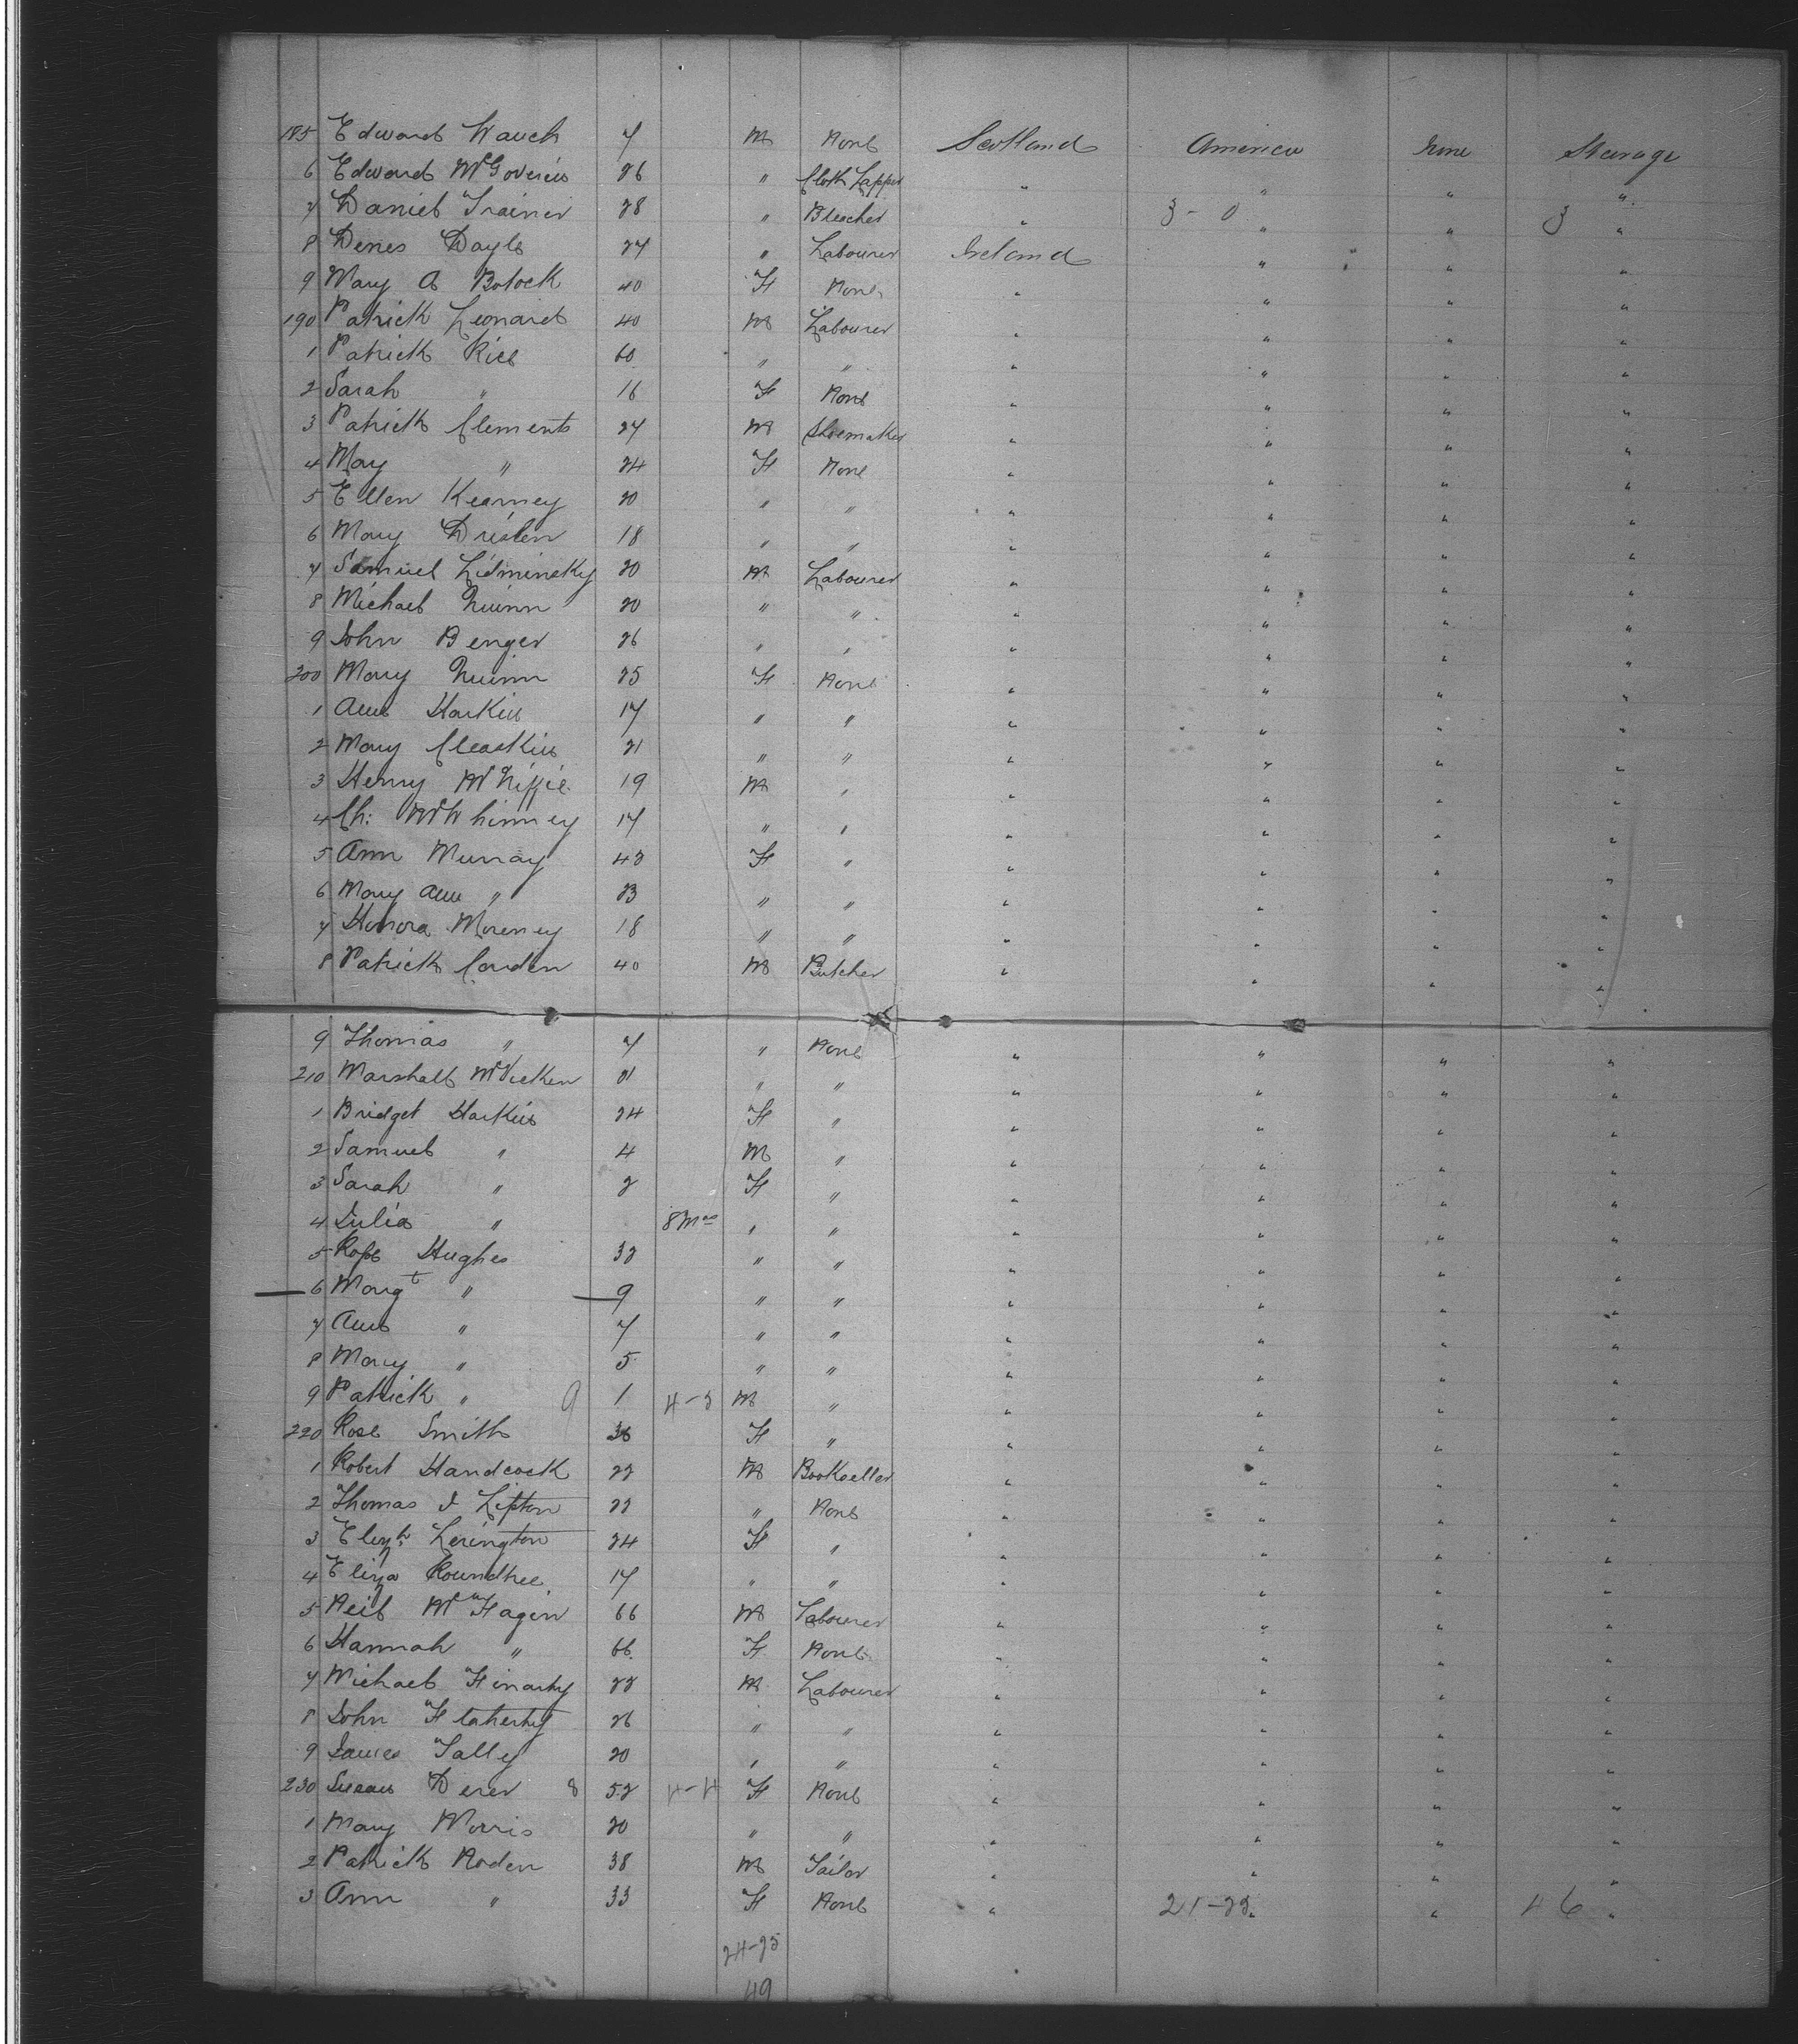 185 Edward Wauch 7 M None Scotland America None Steerage
6 Edward McGoverin 26 " Cloth Lapper " " " "
7 Daniel Trainer 28 " Bleacher " 3 - 0 " " 3 "
8 Denes Doyle 27 " Labourer Ireland " " "
9 Mary A 40 F None " " " "
190 Patrick Leonard 40 M Labourer " " " "
1 Patrick Rice 60 " " " " " "
2 Sarah " 16 F None " " " "
3 Patrick Clements 27 M Shoemaker " " " "
4 May " 24 F None " " " "
5 Ellen Kearney 20 " " " " " "
6 Mary 18 " " " " " "
7 Samuel Lidminsky 20 M Labourer " " " "
8 Michael Quinn 20 " " " " " "
9 John Benger 26 " " " " " "
200 Mary Quinn 25 F None " " " "
1 Ann Harkin 17 " " " " " "
2 Mary 21 " " " " " "
3 Henry 19 M " " " " "
4 Ch: McWhinney 17 " " " " " "
5 Ann Murray 42 F " " " " "
6 Mary Ann " 23 " " " " " "
7 Honora 18 " " " " " "
8 Patrick Carden 40 M Butcher " " " "
9 Thomas " 7 " None " " " "
210 Marshall McVicken 21 " " " " " "
1 Bridget Harkin 24 F " " " " "
2 Samuel " 4 M " " " " "
3 Sarah " 2 F " " " " "
4 Julia " 8 Mos " " " " " "
5 Rose Hughes 32 " " " " " "
6 Margt " 9 " " " " " "
7 Ann " 7 " " " " " "
8 Mary " 5 " " " " " "
9 Patrick " 9 1 4-5 M " " " " "
220 Rose Smith 36 F " " " " "
1 Robert Handcock 22 M Bookseller " " " "
2 Thomas J Lipton 22 " None " " " "
3 Elizth Lerington 24 F " " " " "
4 Eliza Roundtree 17 " " " " " "
5 Neil McFagin 66 M Labourer " " " "
6 Hannah " 66 F None " " " "
7 Michael Finarty 22 M Labourer " " " "
8 John Flaherty 26 " " " " " "
9 James Tally 20 " " " " " "
230 Susan Derer 8 52 4-4 F None " " " "
1 Mary Morris 20 " " " " " "
2 Patrick Noden 38 M Tailor " " " "
3 Ann " 33 F None " 21-25 " " 46 "
24-25
49